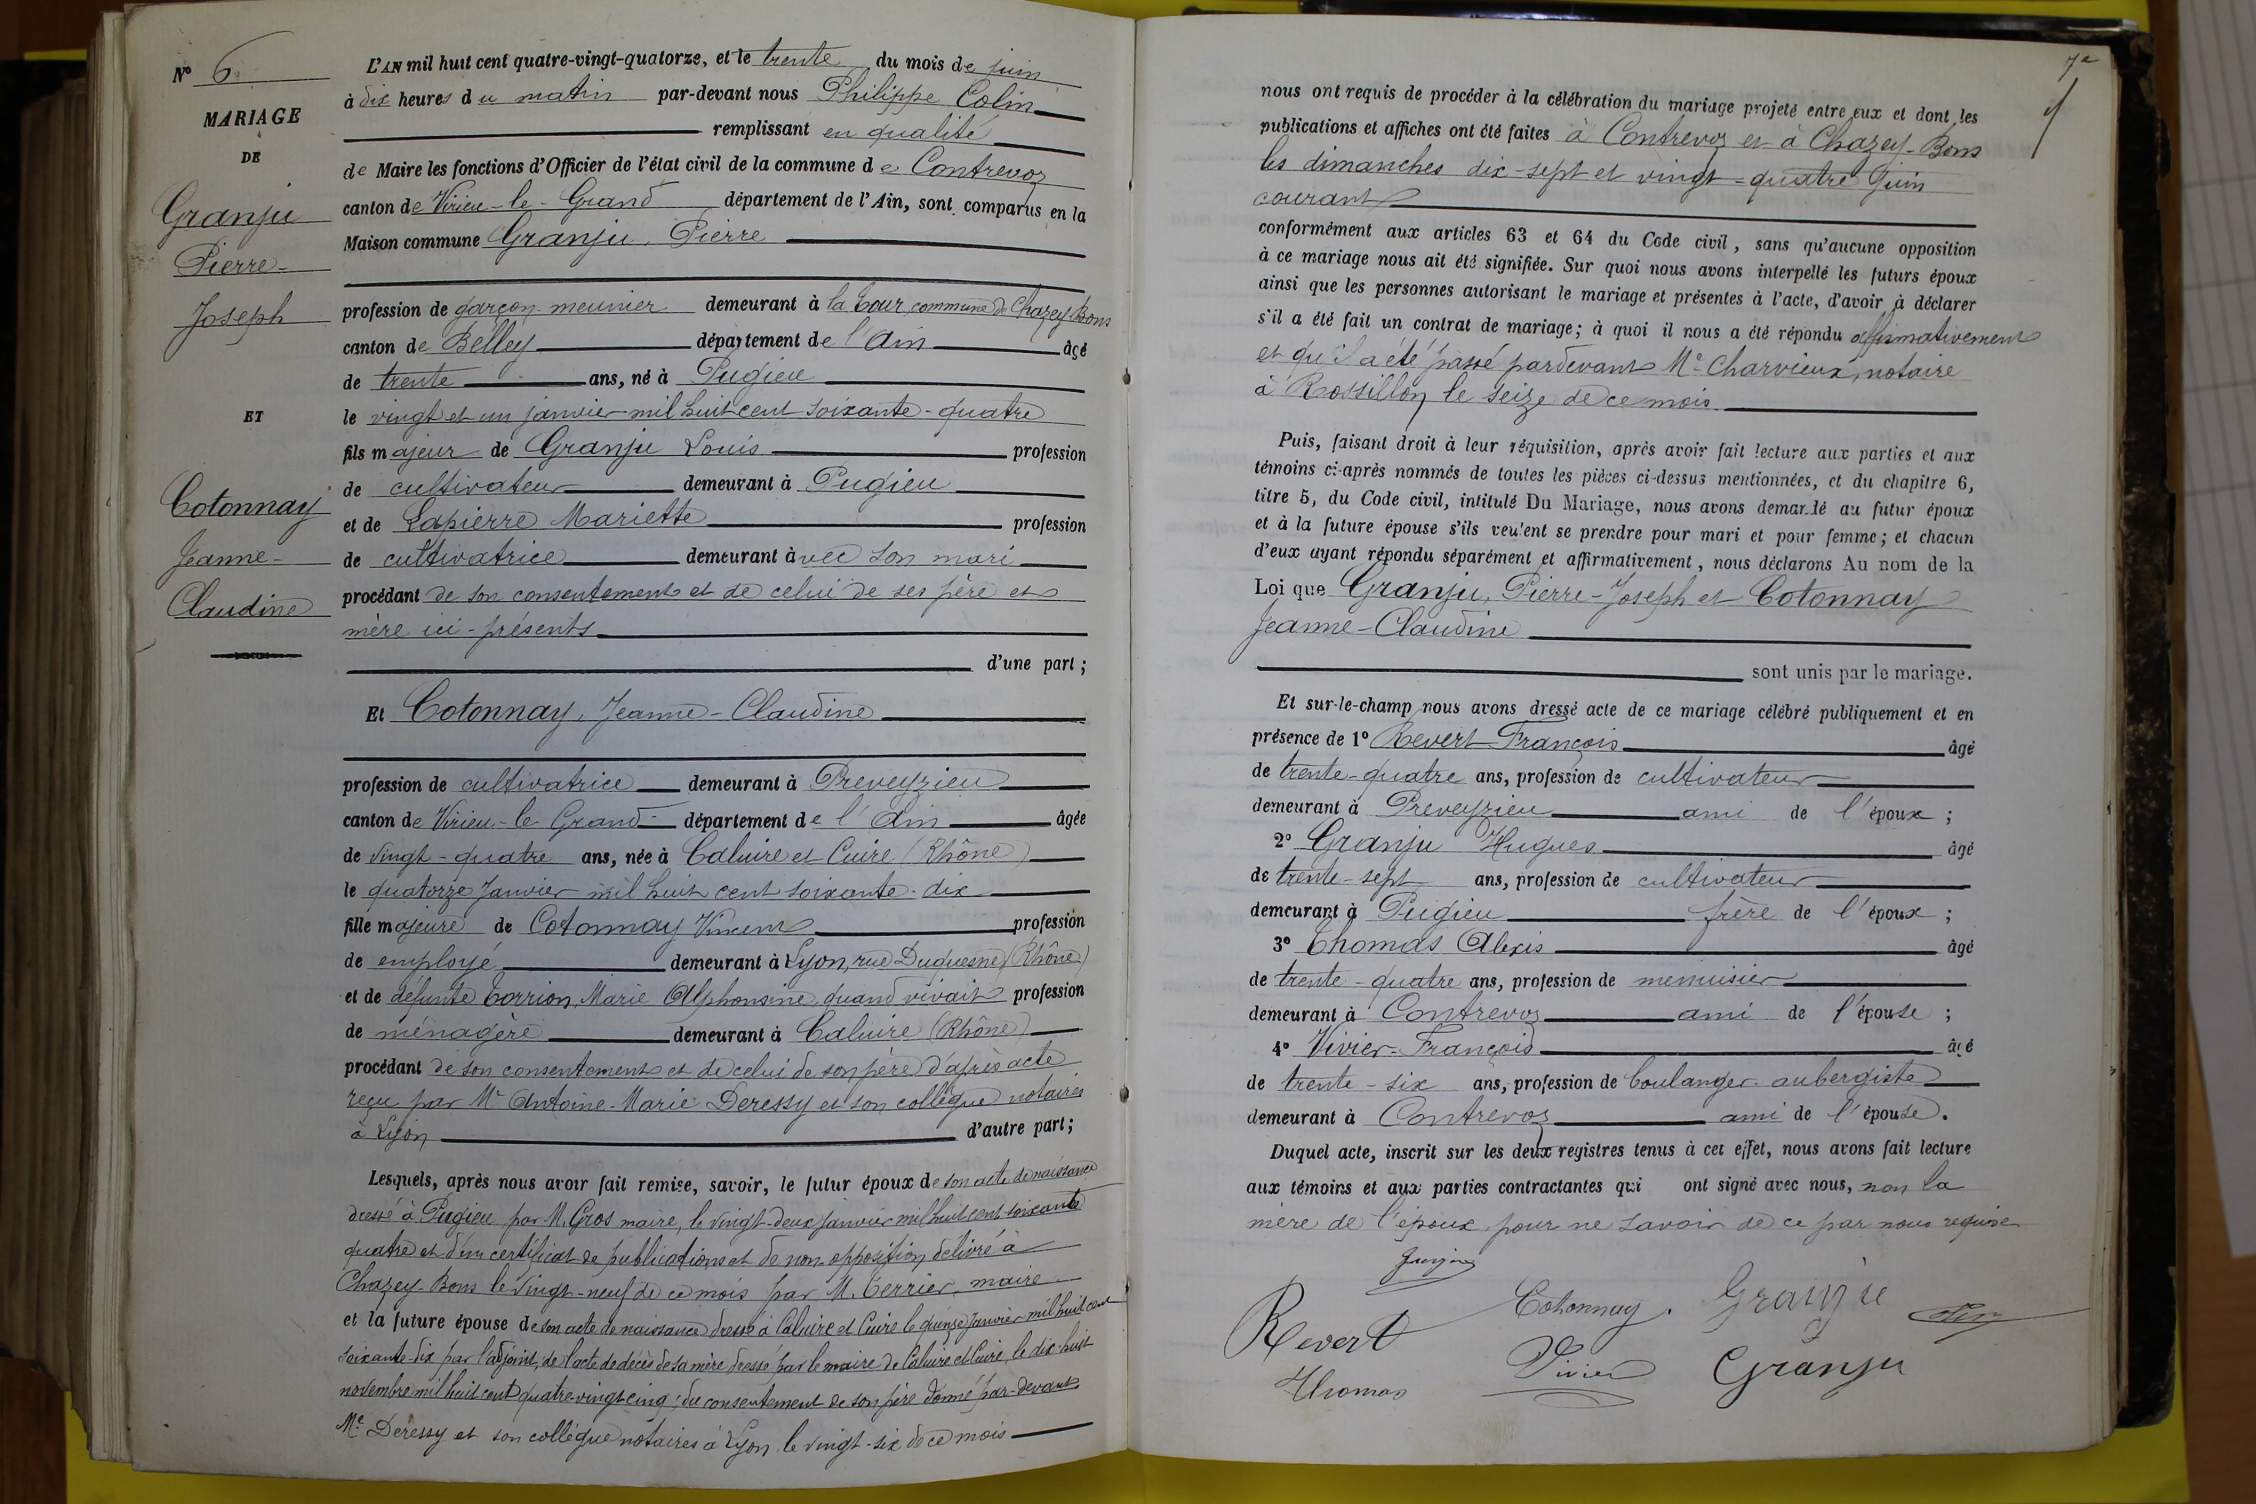 N° 6
MARIAGE
DE
Granju
Pierre-
Joseph
ET
Cotonnay
Jeanne-
Claudine
L'AN mil huit cent quatre-vingt-quatorze, et le trente du mois de juin
à dix heures du matin par-devant nous Philippe Colin
remplissant en qualité
de Maire les fonctions d'Officier de l'état civil de la commune de Contrevoz
canton de Virieu-le-Grand département de l'Ain, sont comparus en la
Maison commune Granju, Pierre
profession de garçon-meunier demeurant à la Tour, commune de Chazey-Bons
canton de Belley département de l'Ain âgé
de trente ans, né à Pugieu
le vingt et un janvier mil huit cent soixante-quatre
fils majeur de Granju Louis profession
de cultivateur demeurant à Pugieu
et de Lapierre Mariette profession
de cultivatrice demeurant avec son mari
procédant de son consentement et de celui de ses père et
mère ici-présents
d'une part;
Et Cotonnay, Jeanne-Claudine
profession de cultivatrice demeurant à Preveyzieu
canton de Virieu-le-Grand département de l'Ain âgée
de vingt-quatre ans, née à Caluire et Cuire (Rhône)
le quatorze Janvier mil huit cent soixante-dix
fille majeure de Cotonnay Vincent profession
de employé demeurant à Lyon, rue Duquesne (Rhône)
et de défunte Torrion, Marie Alphonsine quand vivait profession
de ménagère demeurant à Caluire (Rhône)
procédant de son consentement et de celui de son père d'après acte
reçu par Me Antoine-Marie Deressy et son collègue notaires
à Lyon d'autre part;
Lesquels, après nous avoir fait remise, savoir, le futur époux de son acte de naissance
dressé à Pugieu par M. Gros maire, le vingt-deux janvier mil huit cent soixante
quatre et d'un certificat de publications et de non-opposition délivré à
Chazey-Bons le vingt-neuf de ce mois par M. Terrier, maire
et la future épouse de son acte de naissance dressé à Caluire et Cuire le quinze Janvier mil huit cent
soixante-dix par l'adjoint, de l'acte de décès de sa mère dressé par le maire de Caluire et Cuire, le dix-huit
novembre mil huit cent quatre-vingt-cinq; du consentement de son père donné par-devant
Me Deressy et son collègue notaires à Lyon le vingt-six de ce mois
7e
nous ont requis de procéder à la célébration du mariage projeté entre eux et dont les
publications et affiches ont été faites à Contrevoz et à Chazey-Bons
les dimanches dix-sept et vingt-quatre Juin
courant
conformément aux articles 63 et 64 du Code civil, sans qu'aucune opposition
à ce mariage nous ait été signifiée. Sur quoi nous avons interpellé les futurs époux
ainsi que les personnes autorisant le mariage et présentes à l'acte, d'avoir à déclarer
s'il a été fait un contrat de mariage; à quoi il nous a été répondu affirmativement
et qu'il a été passé pardevant Me Charvieux, notaire
à Rossillon le seize de ce mois
Puis, faisant droit à leur réquisition, après avoir fait lecture aux parties et aux
témoins ci-après nommés de toutes les pièces ci-dessus mentionnées, et du chapitre 6,
titre 5, du Code civil, intitulé Du Mariage, nous avons demandé au futur époux
et à la future épouse s'ils veulent se prendre pour mari et pour femme; et chacun
d'eux ayant répondu séparément et affirmativement, nous déclarons Au nom de la
Loi que Granju, Pierre-Joseph et Cotonnay
Jeanne-Claudine
sont unis par le mariage.
Et sur-le-champ nous avons dressé acte de ce mariage célébré publiquement et en
présence de 1° Revert François âgé
de trente-quatre ans, profession de cultivateur
demeurant à Preveyzieu ami de l'époux;
2° Granju Hugues âgé
de trente-sept ans, profession de cultivateur
demeurant à Pugieu frère de l'époux;
3° Thomas Alexis âgé
de trente-quatre ans, profession de menuisier
demeurant à Contrevoz ami de l'épouse;
4° Vivier François âgé
de trente-six ans, profession de boulanger-aubergiste
demeurant à Contrevoz ami de l'épouse.
Duquel acte, inscrit sur les deux registres tenus à cet effet, nous avons fait lecture
aux témoins et aux parties contractantes qui ont signé avec nous, non la
mère de l'époux pour ne savoir de ce par nous requise
Cotonnay. Granju Colin
Revert
Vivier Granju
Thomas